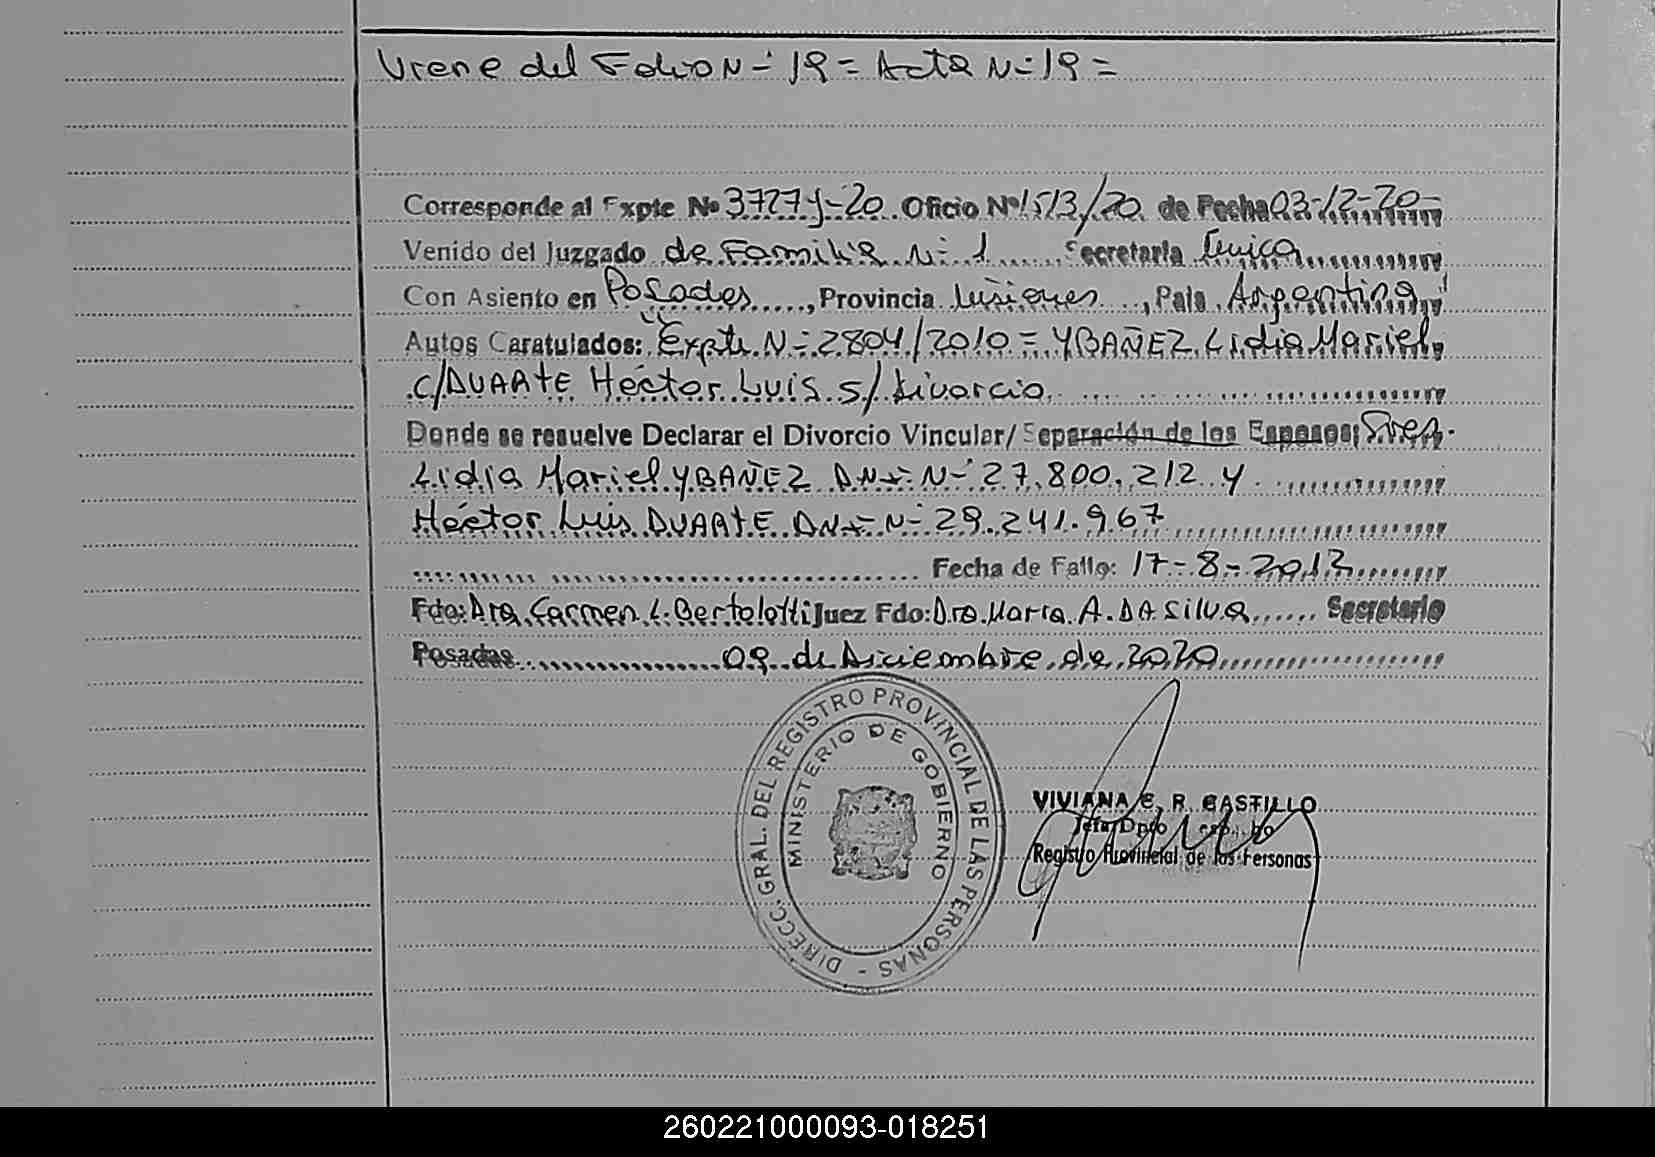 Viene del Folio N=19= Acta N=19=
Corresponde al Expte Nº 3727 J-20 Oficio Nº 1513/20 de Fecha 03-12-20-
Venido del Juzgado de Familia N=1 Secretaria Unica
Con Asiento en Posadas, Provincia Misiones, Pais Argentina
Autos Caratulados: "Expte N=2804/2010= YBAÑEZ Lidia Mariel
c/DUARTE Héctor Luis s/ divorcio
Donde se resuelve Declarar el Divorcio Vincular/Separación de los Esposos; Sres.
Lidia Mariel YBAÑEZ DNI= N=27.800.212 y
Héctor Luis DUARTE DNI= N=29.241.967
Fecha de Fallo: 17-8-2012
Fdo: Dra. Carmen L. Bertolotti Juez Fdo: Dra. Maria A. DA Silva Secretario
Posadas 09 de Diciembre de 2020
DIRECC. GRAL. DEL REGISTRO PROVINCIAL DE LAS PERSONAS -
MINISTERIO DE GOBIERNO
VIVIANA E. R. CASTILLO
Jefa Dpto
Registro Provincial de las Personas
260221000093-018251